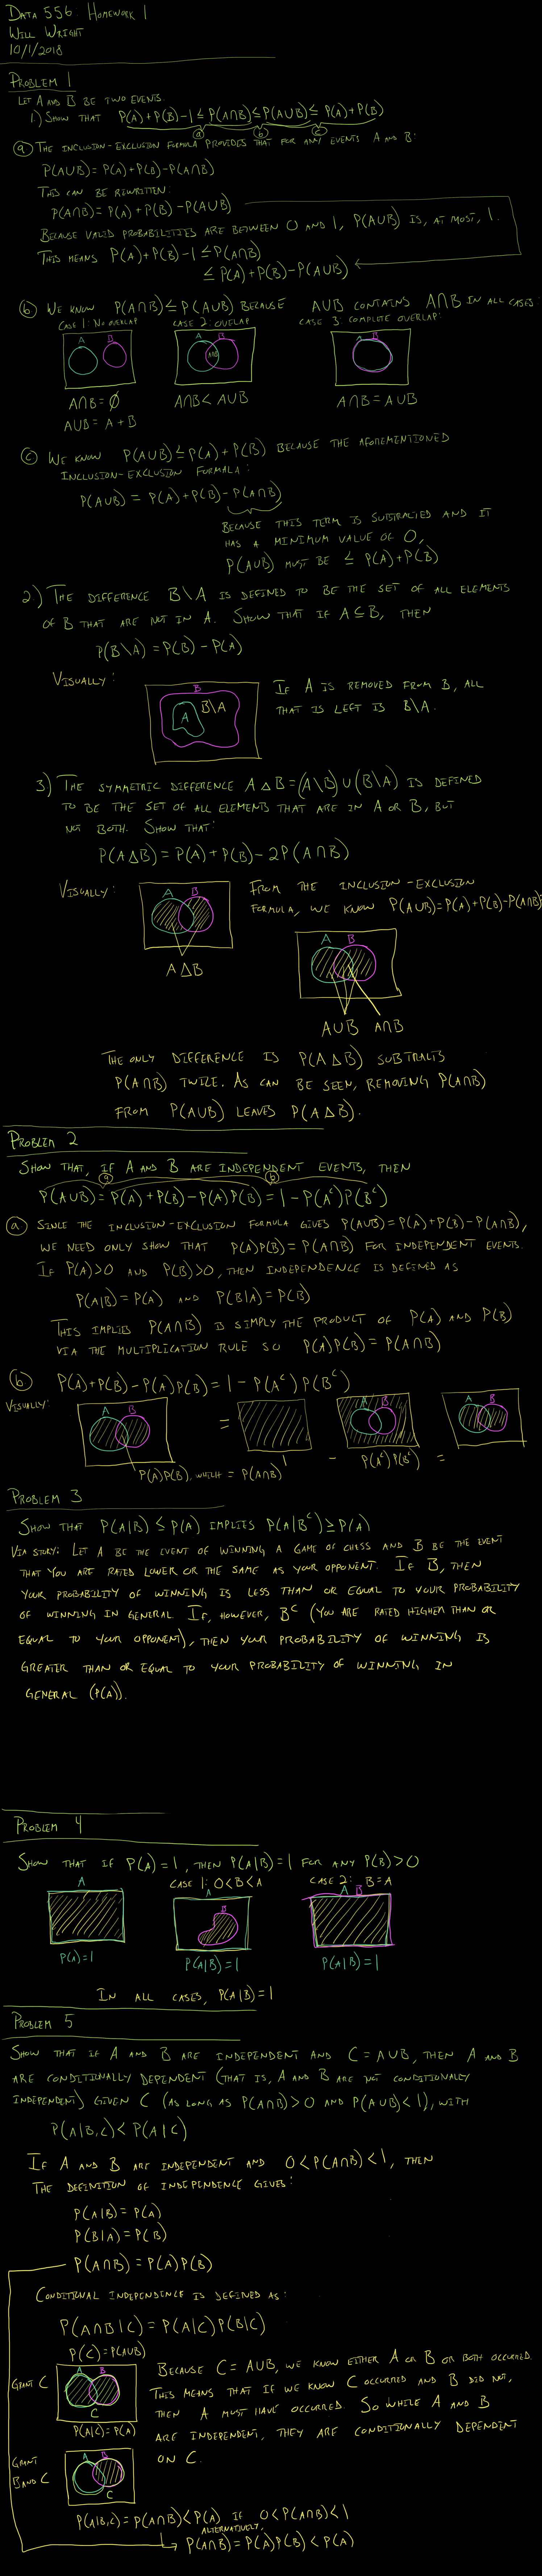 DATA 556 HOMEWORK 1
WILL WRIGHT
10/1/2018
PROBLEM 1
LET A AND B BE TWO EVENTS.
1.) SHOW THAT P(A)+P(B)-1≤P(A∩B)≤P(A∪B)≤P(A)+P(B)
ⓐ ⓑ ⓒ
ⓐ THE INCLUSION-EXCLUSION FORMULA PROVIDES THAT FOR ANY EVENTS A AND B:
P(A∪B)=P(A)+P(B)-P(A∩B)
THIS CAN BE REWRITTEN:
P(A∩B)=P(A)+P(B)-P(A∪B)
BECAUSE VALID PROBABILITIES ARE BETWEEN 0 AND 1, P(A∪B) IS, AT MOST, 1.
THIS MEANS P(A)+P(B)-1≤P(A∩B)
≤P(A)+P(B)-P(A∪B)
ⓑ WE KNOW P(A∩B)≤P(A∪B) BECAUSE A∪B CONTAINS A∩B IN ALL CASES
CASE 1: NO OVERLAP CASE 2: OVERLAP CASE 3: COMPLETE OVERLAP:
A B A B A B
A∩B
A∩B=∅ A∩B<A∪B A∩B=A∪B
A∪B=A+B
ⓒ WE KNOW P(A∪B)≤P(A)+P(B) BECAUSE THE AFOREMENTIONED
INCLUSION-EXCLUSION FORMULA:
P(A∪B)=P(A)+P(B)-P(A∩B)
BECAUSE THIS TERM IS SUBTRACTED AND IT
HAS A MINIMUM VALUE OF 0,
P(A∪B) MUST BE ≤ P(A)+P(B)
2) THE DIFFERENCE B\A IS DEFINED TO BE THE SET OF ALL ELEMENTS
OF B THAT ARE NOT IN A. SHOW THAT IF A⊆B, THEN
P(B\A)=P(B)-P(A)
VISUALLY:
B
A B\A
IF A IS REMOVED FROM B, ALL
THAT IS LEFT IS B\A.
3) THE SYMMETRIC DIFFERENCE A△B=(A\B)∪(B\A) IS DEFINED
TO BE THE SET OF ALL ELEMENTS THAT ARE IN A OR B, BUT
NOT BOTH. SHOW THAT:
P(A△B)=P(A)+P(B)-2P(A∩B)
VISUALLY:
A B
A△B
FROM THE INCLUSION-EXCLUSION
FORMULA, WE KNOW P(A∪B)=P(A)+P(B)-P(A∩B)
A B
A∪B A∩B
THE ONLY DIFFERENCE IS P(A△B) SUBTRACTS
P(A∩B) TWICE. AS CAN BE SEEN, REMOVING P(A∩B)
FROM P(A∪B) LEAVES P(A△B).
PROBLEM 2
SHOW THAT, IF A AND B ARE INDEPENDENT EVENTS, THEN
ⓐ ⓑ
P(A∪B)=P(A)+P(B)-P(A)P(B)=1-P(Aᶜ)P(Bᶜ)
ⓐ SINCE THE INCLUSION-EXCLUSION FORMULA GIVES P(A∪B)=P(A)+P(B)-P(A∩B),
WE NEED ONLY SHOW THAT P(A)P(B)=P(A∩B) FOR INDEPENDENT EVENTS.
IF P(A)>0 AND P(B)>0, THEN INDEPENDENCE IS DEFINED AS
P(A|B)=P(A) AND P(B|A)=P(B)
THIS IMPLIES P(A∩B) IS SIMPLY THE PRODUCT OF P(A) AND P(B)
VIA THE MULTIPLICATION RULE SO P(A)P(B)=P(A∩B)
ⓑ P(A)+P(B)-P(A)P(B)=1-P(Aᶜ)P(Bᶜ)
VISUALLY:
A B = A B A B
P(A)P(B), WHICH =P(A∩B) 1 - P(Aᶜ)P(Bᶜ) =
PROBLEM 3
SHOW THAT P(A|B)≤P(A) IMPLIES P(A|Bᶜ)≥P(A)
VIA STORY: LET A BE THE EVENT OF WINNING A GAME OF CHESS AND B BE THE EVENT
THAT YOU ARE RATED LOWER OR THE SAME AS YOUR OPPONENT. IF B, THEN
YOUR PROBABILITY OF WINNING IS LESS THAN OR EQUAL TO YOUR PROBABILITY
OF WINNING IN GENERAL. IF, HOWEVER, Bᶜ (YOU ARE RATED HIGHER THAN OR
EQUAL TO YOUR OPPONENT), THEN YOUR PROBABILITY OF WINNING IS
GREATER THAN OR EQUAL TO YOUR PROBABILITY OF WINNING IN
GENERAL (P(A)).
PROBLEM 4
SHOW THAT IF P(A)=1, THEN P(A|B)=1 FOR ANY P(B)>0
A CASE 1: 0<B<A CASE 2: B=A
A B A B
P(A)=1 P(A|B)=1 P(A|B)=1
IN ALL CASES, P(A|B)=1
PROBLEM 5
SHOW THAT IF A AND B ARE INDEPENDENT AND C=A∪B, THEN A AND B
ARE CONDITIONALLY DEPENDENT (THAT IS, A AND B ARE NOT CONDITIONALLY
INDEPENDENT) GIVEN C (AS LONG AS P(A∩B)>0 AND P(A∪B)<1), WITH
P(A|B,C)<P(A|C)
IF A AND B ARE INDEPENDENT AND 0<P(A∩B)<1, THEN
THE DEFINITION OF INDEPENDENCE GIVES:
P(A|B)=P(A)
P(B|A)=P(B)
P(A∩B)=P(A)P(B)
CONDITIONAL INDEPENDENCE IS DEFINED AS:
P(A∩B|C)=P(A|C)P(B|C)
P(C)=P(A∪B)
GIVEN C
A B
C
P(A|C)=P(A)
BECAUSE C=A∪B, WE KNOW EITHER A OR B OR BOTH OCCURRED.
THIS MEANS THAT IF WE KNOW C OCCURRED AND B DID NOT,
THEN A MUST HAVE OCCURRED. SO WHILE A AND B
ARE INDEPENDENT, THEY ARE CONDITIONALLY DEPENDENT
ON C.
GIVEN
B AND C
A B
C
P(A|B,C)=P(A∩B)<P(A) IF 0<P(A∩B)<1
ALTERNATIVELY,
P(A∩B)=P(A)P(B)<P(A)